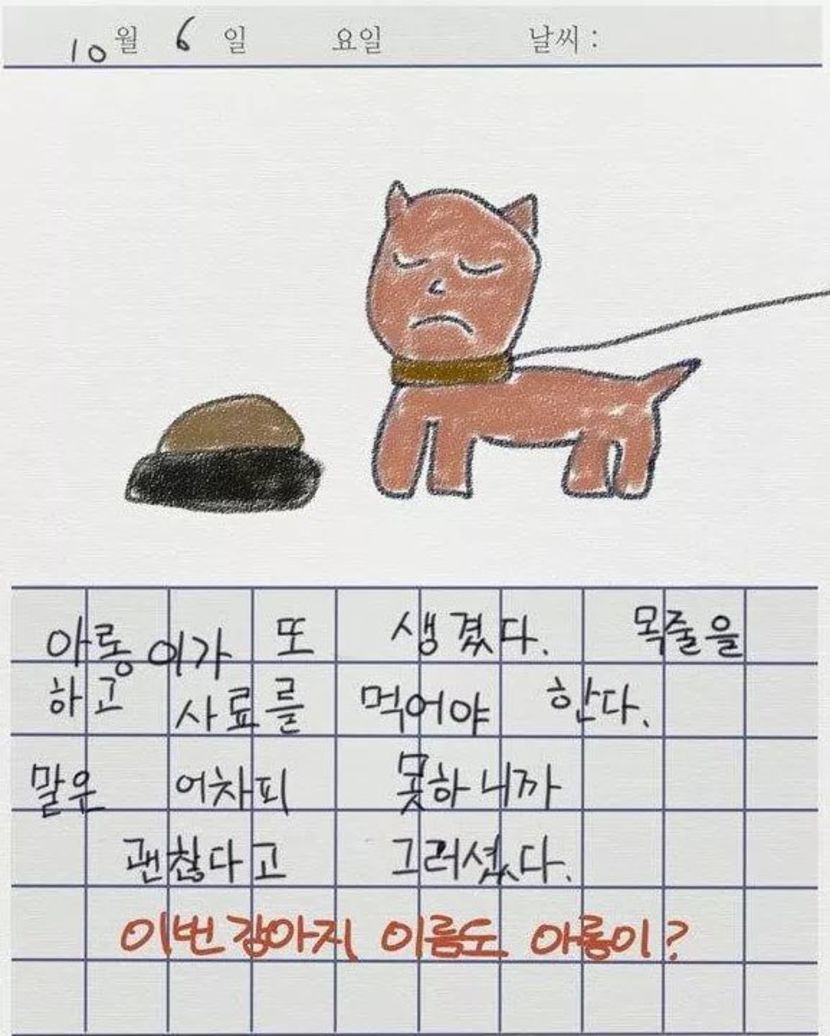 10월 6일 요일 날씨:
아롱이가 또 생겼다. 목줄을
하고 사료를 먹어야 한다.
말은 어차피 못하니까
괜찮다고 그러셨다.
이번 강아지 이름도 아롱이?